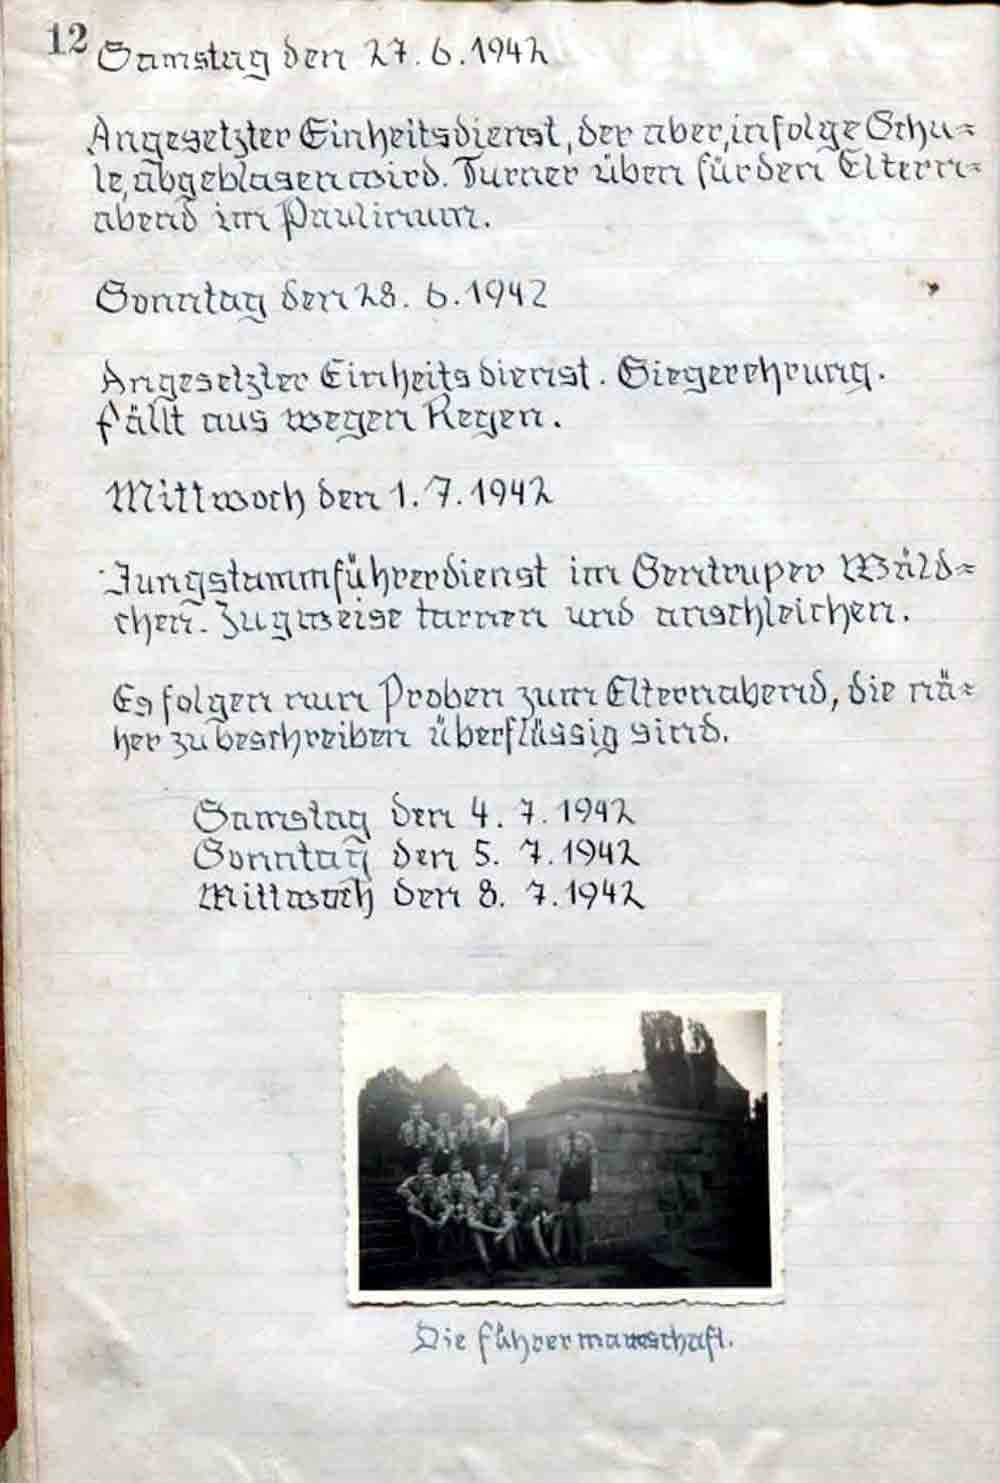 12
Samstag den 27.6.1942
Angesetzter Einheitsdienst, der aber, infolge Schu=
le, abgeblasen wird. Turner üben für den Eltern=
abend im Paulinum.
Sonntag den 28.6.1942
Angesetzter Einheitsdienst. Siegerehrung.
fällt aus wegen Regen.
Mittwoch den 1.7.1942
Jungstammführerdienst im Gentruper Wäld=
chen. Zugweise tarnen und anschleichen.
Es folgen nun Proben zum Elternabend, die nä=
her zu beschreiben überflüssig sind.
Samstag den 4. 7. 1942
Sonntag den 5. 7. 1942
Mittwoch den 8. 7. 1942
Die Führermannschaft.